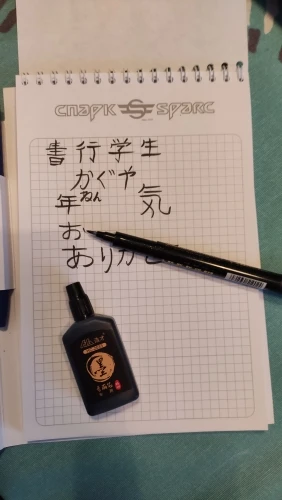 СПАРК SPARC
書行学生
かぐや
年ねん 気
お
ありがと
墨